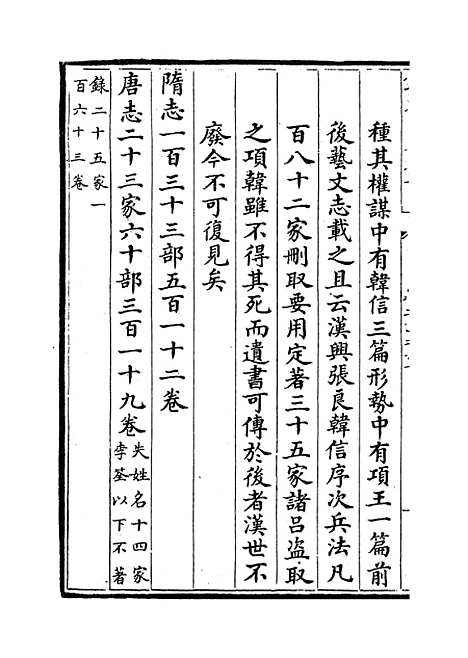 種其權謀中有韓信三篇形勢中有項王一篇前
後藝文志載之且云漢興張良韓信序次兵法凡
百八十二家刪取要用定著三十五家諸吕盗取
之項韓雖不得其死而遺書可傳於後者漢世不
廢今不可復見矣
隋志一百三十三部五百一十二卷
唐志二十三家六十部三百一十九卷失姓名十四家
李筌以下不著
錄二十五家一
百六十三卷